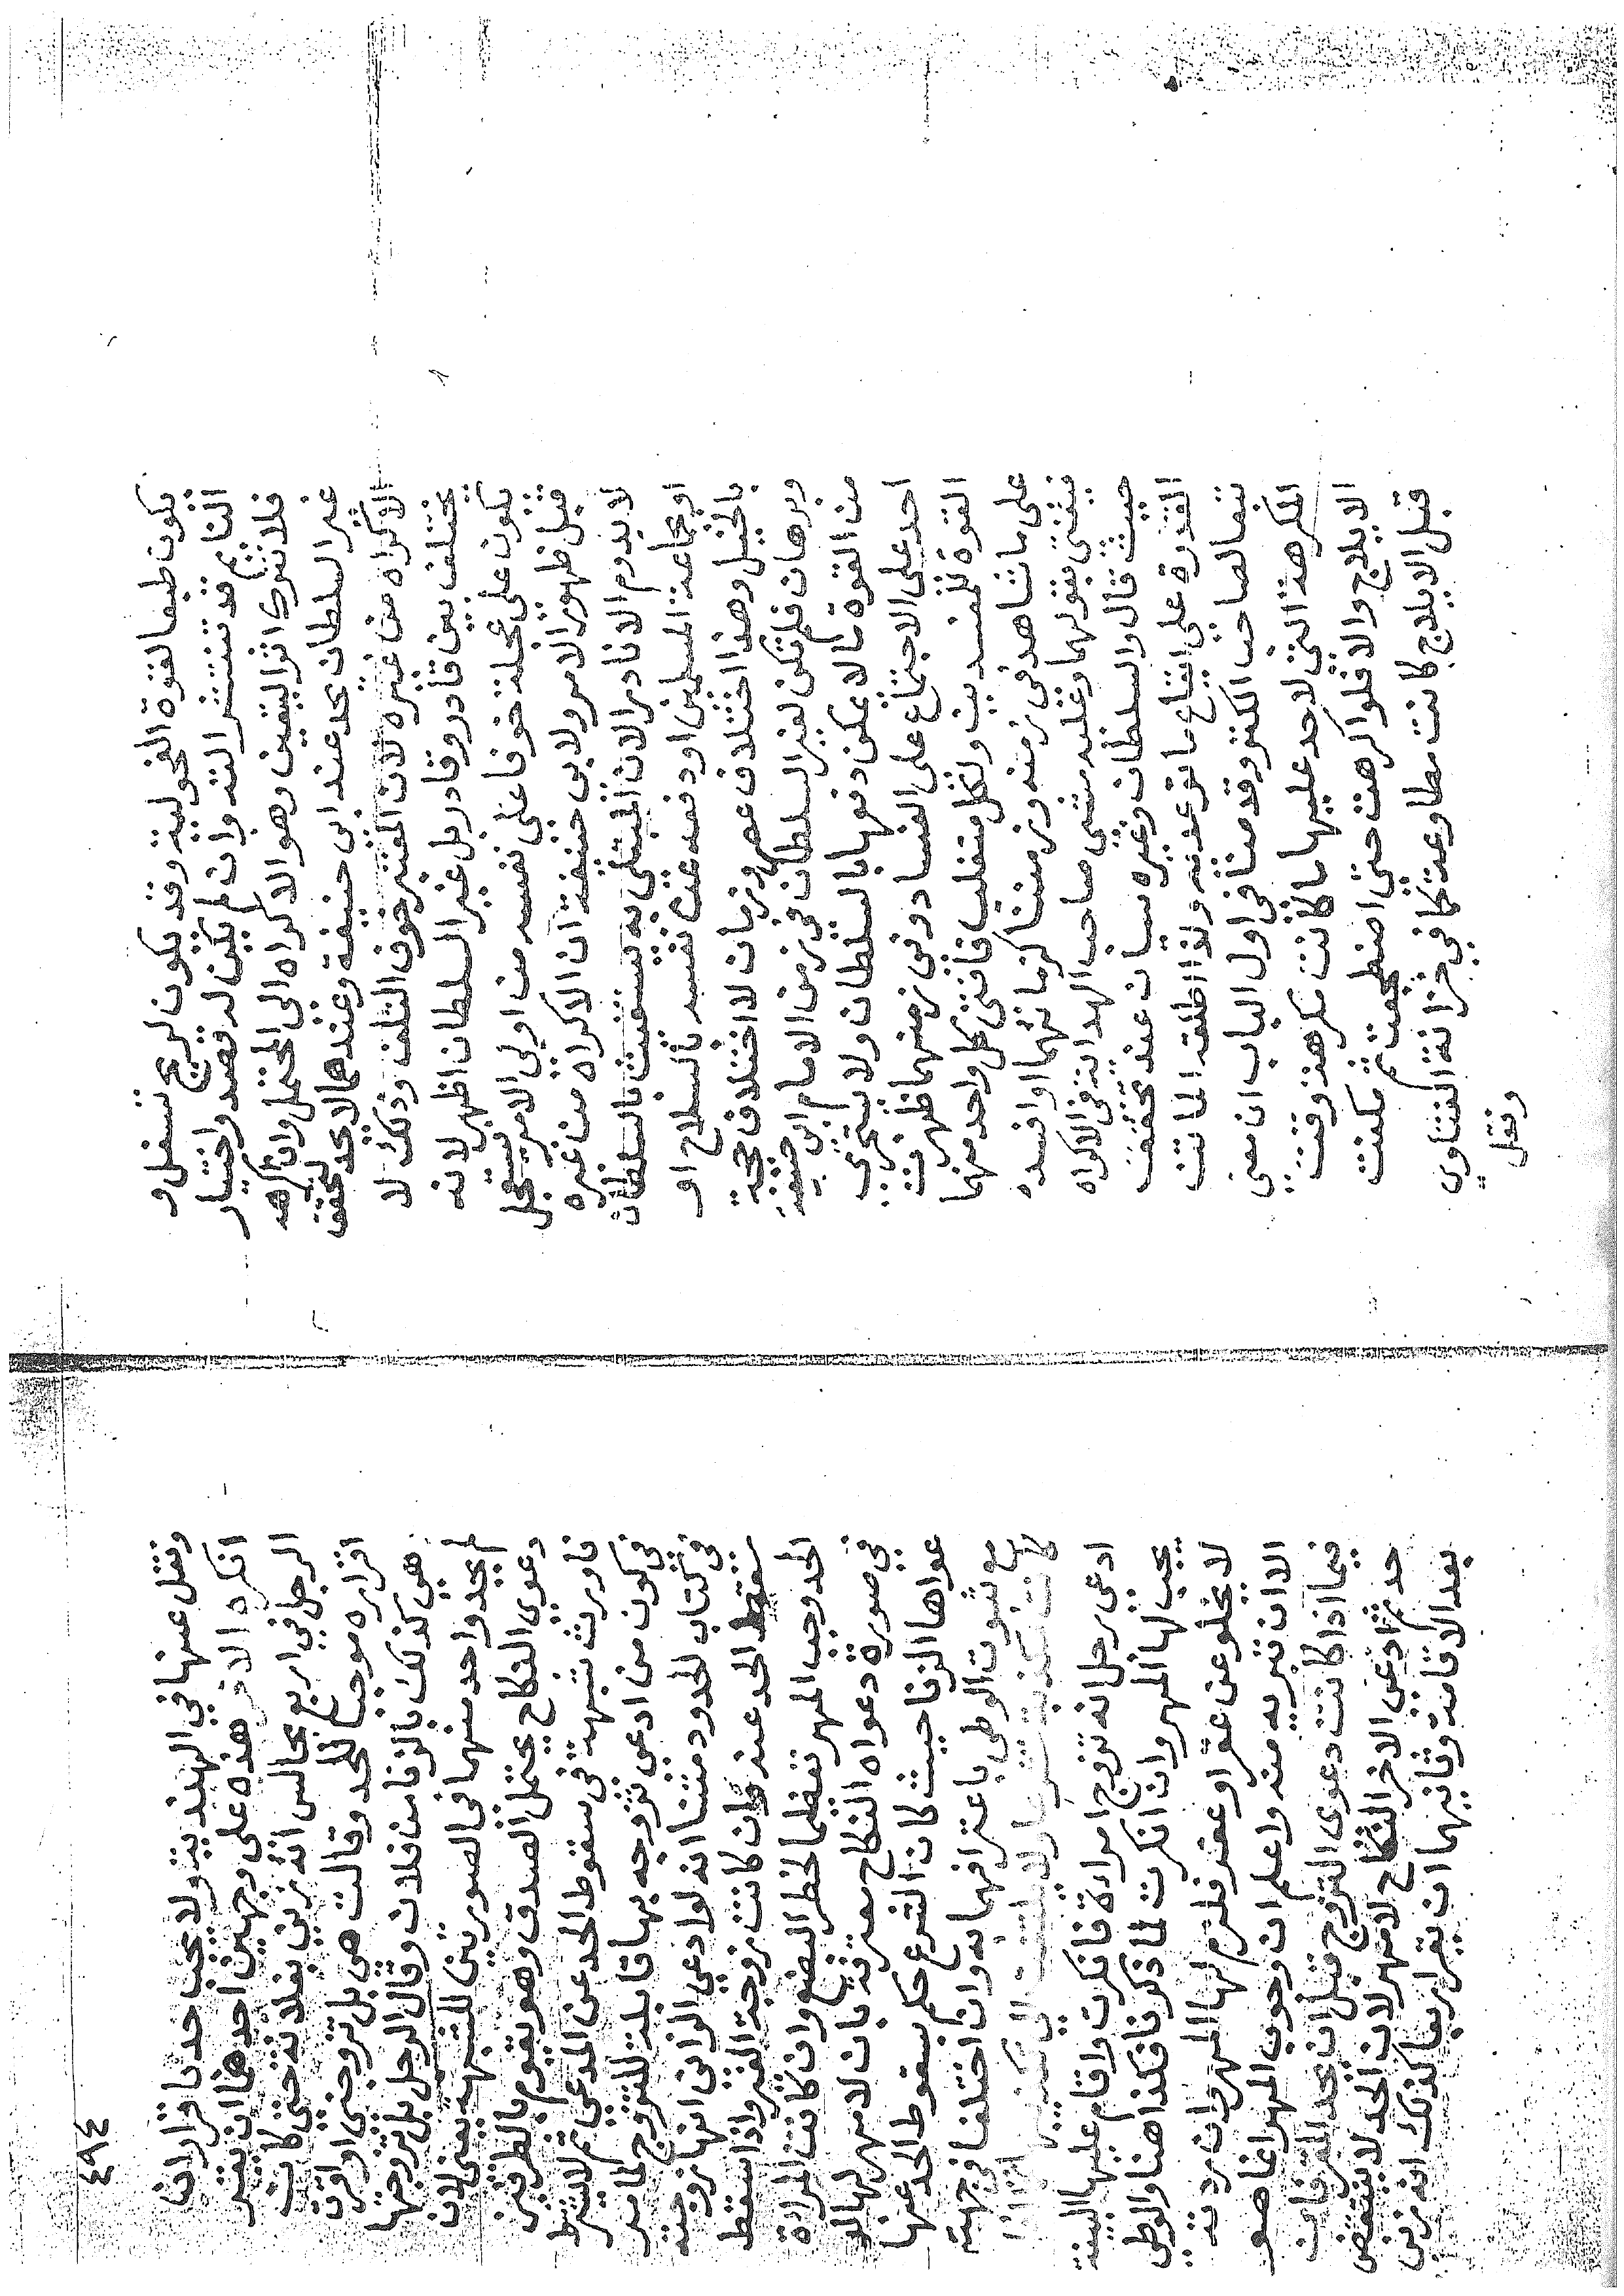 يكون طبعا لقوة الفحولية وقد يكون لريح تسفل و
النائم قد تنتشر الته وان لم يكن له قصد واختيار
فلا يترك اثر اليقين وهو الاكراه الى المحتمل وان اكرهه
غير السلطان يحد عند ابي حنيفة وعندهما لا يحد لتحقق
الاكراه من غيره لان المعتبر خوف التلف وذلك لا
يختلف بين قادر وقادر بل غير السلطان اظهر لانه
يكون على عجلة خوفا على نفسه من اولى الامر فيستعجل
قبل ظهور الامر ولابي حنيفة ان الاكراه من غيره
لا يدوم الا نادرا لان المبتلى به يستغيث بالسلطان
او بجماعة المسلمين او دفعه عن نفسه بالسلاح او
بالحيل وهذا اختلاف عصر وزمان لا اختلاف حجة
وبرهان فلم تكن لغير السلطان في زمن الامام ابي حنيفة
من القوة ما لا يمكن دفعها بالسلطان ولا يتجرى
احد على الاجتماع على الفساد وفي زمنهما ظهرت
القوة للمفسدين ولكل متغلب فافتى كل واحد منهما
على ما شاهد في زمنه وزمننا كزمانهما او افسد
فيفتى بقولهما وعليه مشى صاحب الهداية في الاكراه
حيث قال والسلطان وغيره سيان عند تحقق
القدرة على ايقاع ما توعد به ولذا اطلقه الماتن
تبعا لصاحب الكنز وقد مشا في اول الباب ان معنى
المكرهة التي لا حد عليها ما كانت مكرهة وقت
الايلاج والا فلو اكرهت حتى اضطجعت ثم مكنت
قبل الايلاج كانت مطاوعة كما في خزانة الفتاوى
ونقل
٤٩٤
ونقل عنها في الهندية ولا يجب حد باقرار ان
انكره الاخر هذه على وجهين احدهما ان يقر
الرجل في اربع مجالس انه زنى بفلانة حتى كان
اقراره موجبا للحد وقالت هي بل تزوجني او اقرت
هي كذلك بالزنا من فلان وقال الرجل بل تزوجتها
لم يحد واحد منهما في الصورتين للشبهة يعني لان
دعوى النكاح يحتمل الصدق وهو يقوم بالطرفين
فاورث شبهة في سقوط الحد عن المدعي ثم لا يشترط
في كون من ادعي تزوجه بها قابلة للتزوج لما مر
في كتاب الحدود متنا انه لو ادعي الزاني انها زوجته
سقط الحد عنه وان كانت زوجة الغير واذا سقط
الحد وجب المهر تعظيما لخطر البضع وان كانت المراة
في صورة دعواه النكاح معترفة بان لا مهر لها لد
عواها الزنا حيث كان الشرع حكم بسقوط الحد عنها
مع ثبوت الوطي باعترافهما به وان اختلفا في جهته
ادعى رجل انه تزوج امراة فانكرت واقام عليها البينة
يجب لها المهر وان انكرت لما ذكرنا فكذا هنا والوطي
لا يخلو عن عقر او عقر فلزم لها المهر وان ردته
الا ان تبريه منه واعلم ان وجوب المهر انما هو
فيما اذا كانت دعوى التزوج قبل ان يحد المقر فان
حد ثم ادعى الاخر النكاح لا مهر لان الحد لا ينقض
بعد الاقامة وثانيهما ان يقر اربعا كذلك انه زنى